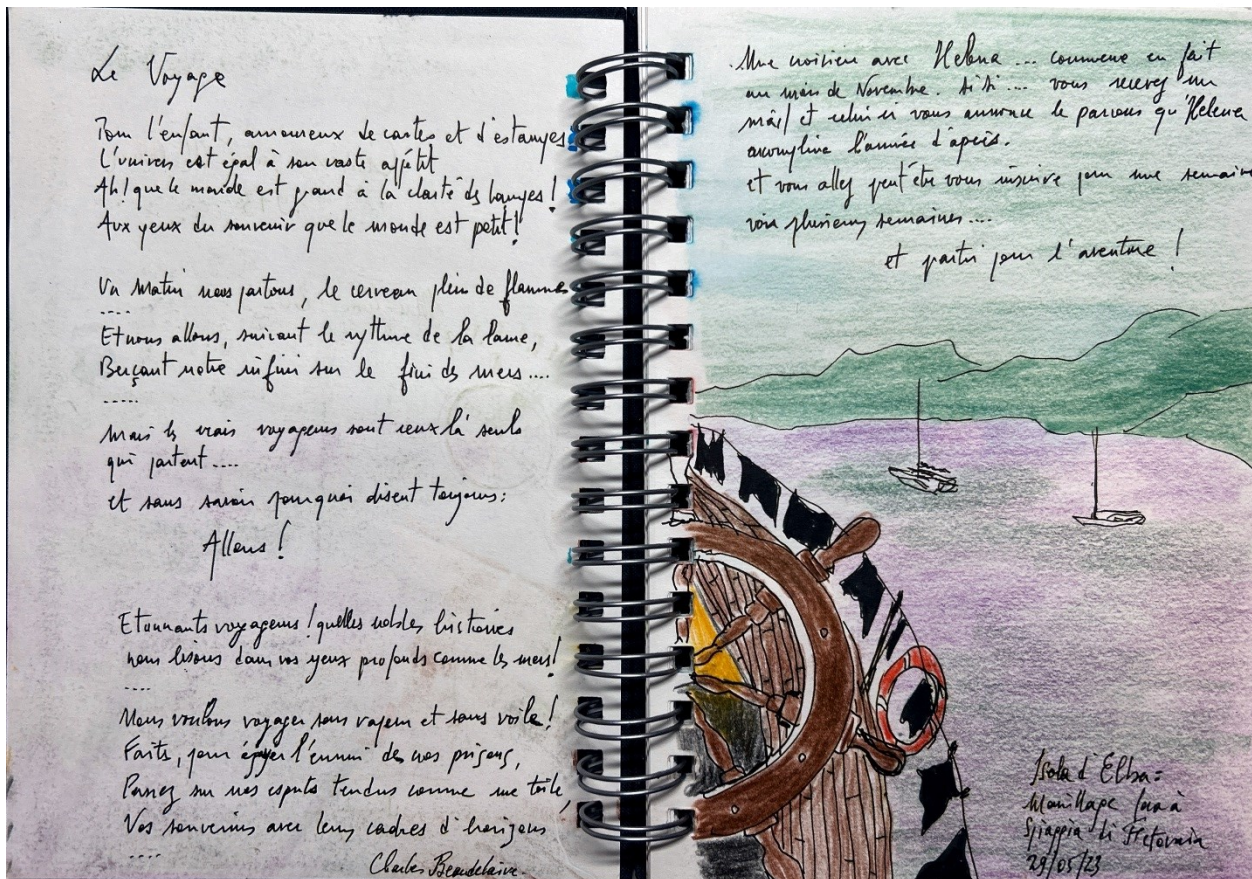 Le Voyage
Pour l'enfant, amoureux de cartes et d'estampes
L'univers est égal à son vaste appétit
Ah! que le monde est grand à la clarté des lampes!
Aux yeux du souvenir que le monde est petit!
Un matin nous partons, le cerveau plein de flamme
....
Et nous allons, suivant le rythme de la lame,
Berçant notre infini sur le fini des mers....
.....
Mais les vrais voyageurs sont ceux là seuls
qui partent....
et sans savoir pourquoi disent toujours:
Allons!
Etonnants voyageurs! quelles nobles histoires
nous lisons dans vos yeux profonds comme les mers!
....
Nous voulons voyager sans vapeur et sans voile!
Faites, pour égayer l'ennui de nos prisons,
Passez sur nos esprits tendus comme une toile,
Vos souvenirs avec leurs cadres d'horizons
....
Charles Beaudelaire.
Une croisière avec Helena ... commence en fait
au mois de Novembre. Si Si .... vous recevez un
mail et celui ci vous annonce le parcours qu'Helena
accomplira l'année d'après.
et vous allez peut être vous inscrire pour une semaine
voir plusieurs semaines....
et partir pour l'aventure!
Isola d'Elba:
Mouillage face à
Spiaggia di Fetovaia
29/05/23